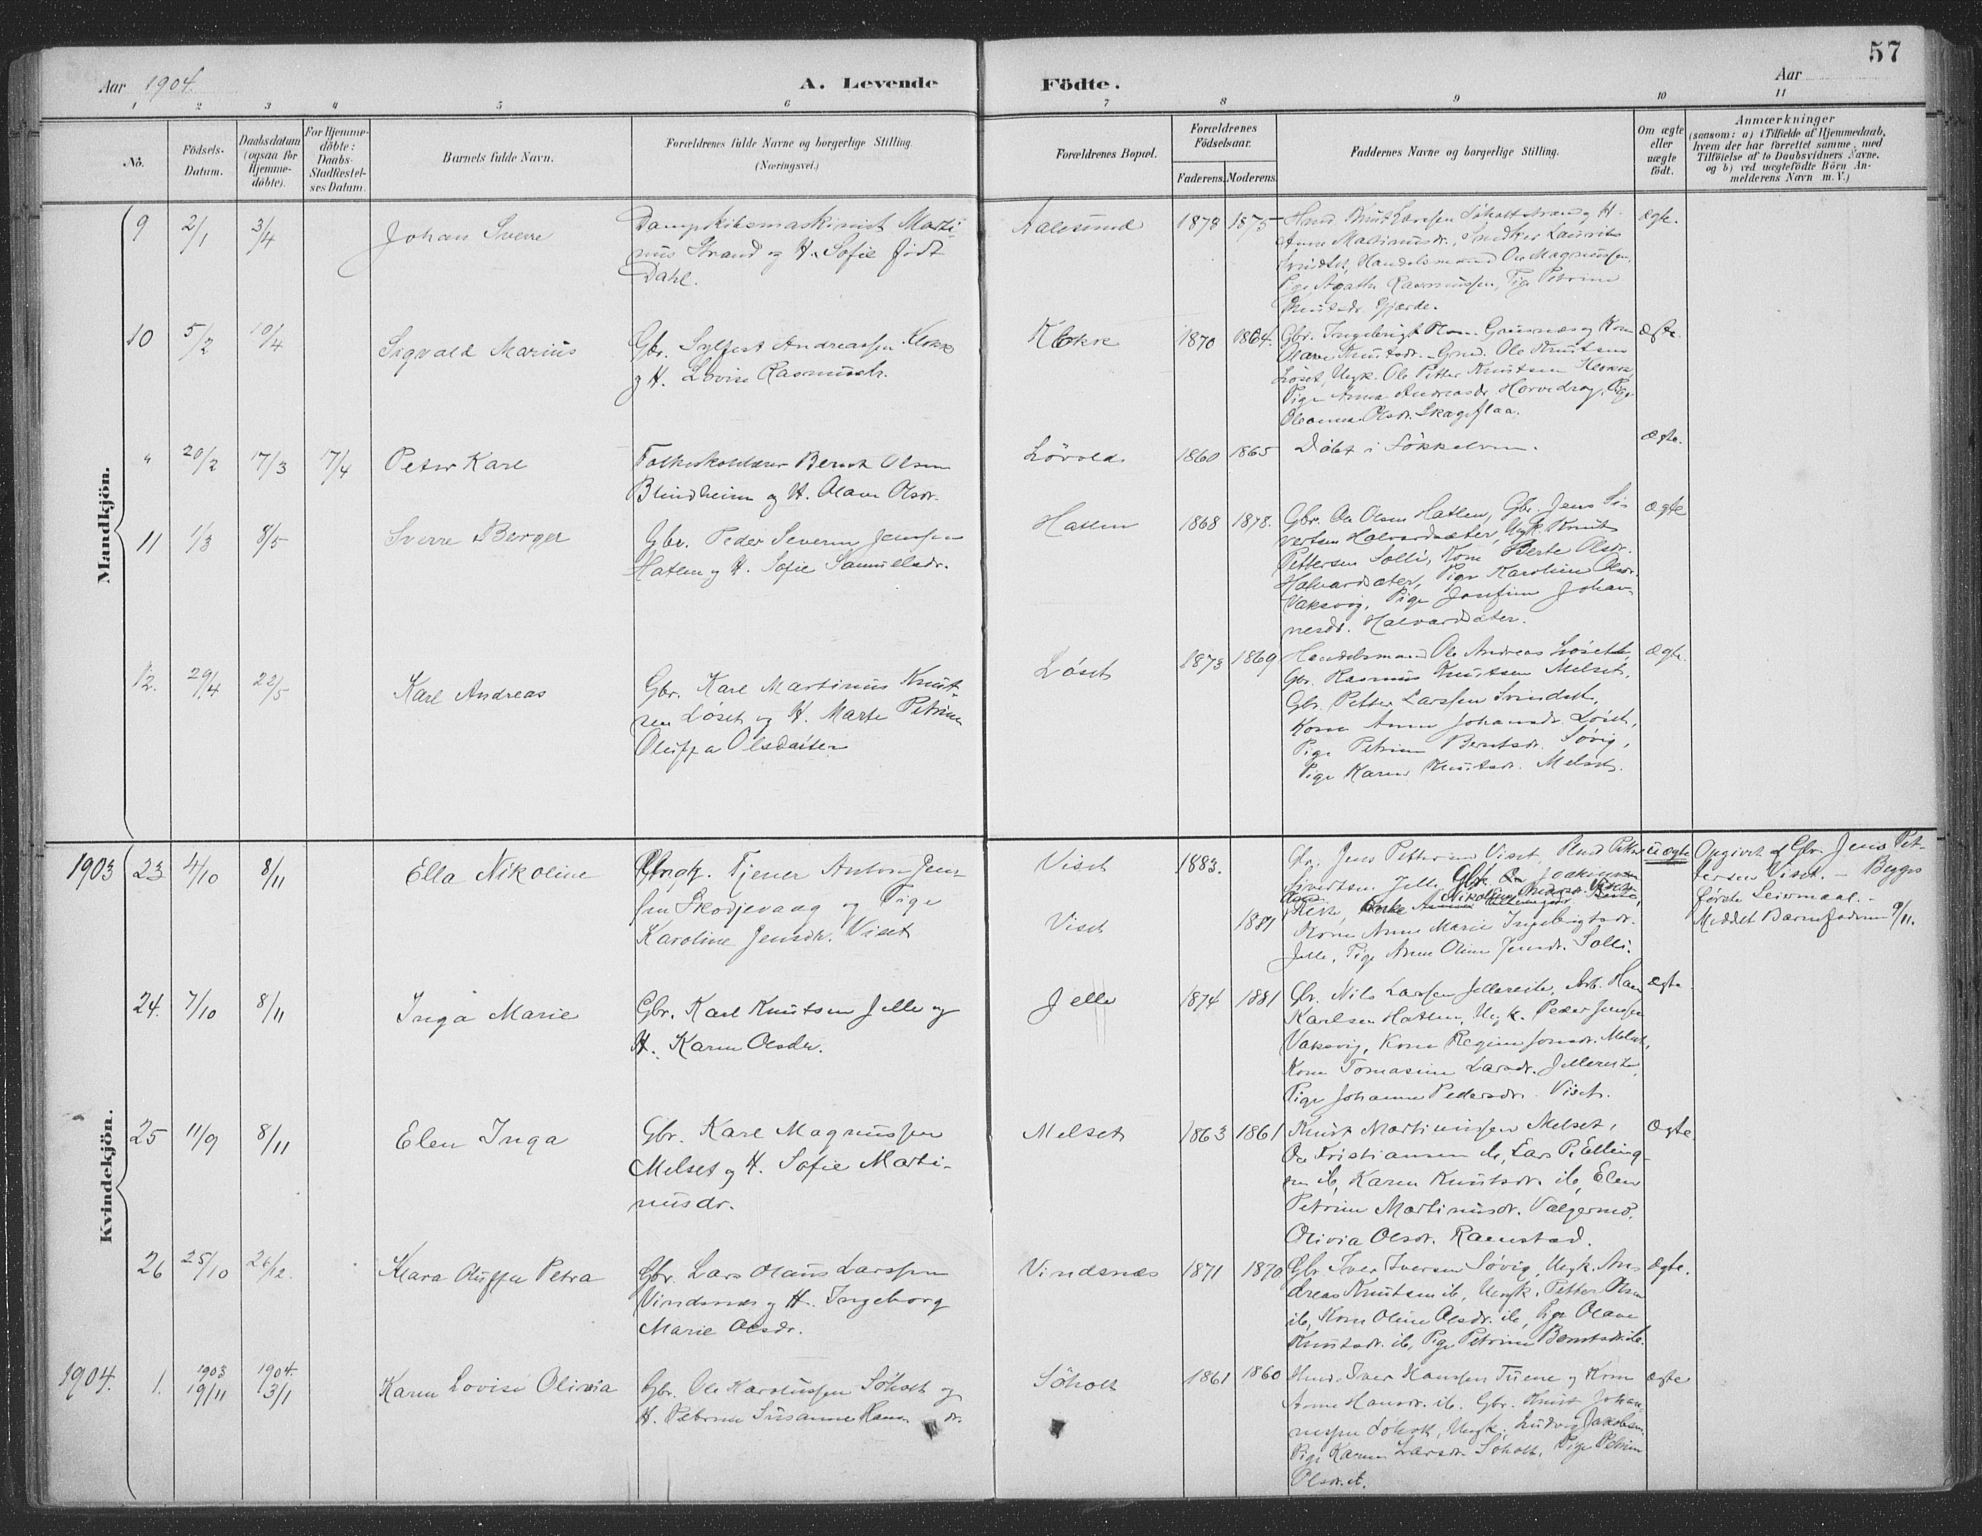 57
Aar 1904.
A. Levende Födte.
Aar
1 2 3 4 5 6 7 8 9 10 11
No.
Födsels-Datum.
Daabsdatum (ogsaa for Hjemme-döbte).
For Hjemme-döbte: Daabs-Stadfæstel-ses Datum.
Barnets fulde Navn.
Forældrenes fulde Navne og borgerlige Stilling.
(Næringsvei.)
Forældrenes Bopæl.
Forældrenes Födselsaar.
Faderens. Moderens.
Faddernes Navne og borgerlige Stilling.
Om ægte eller uægte födt.
Anmærkninger
(saasom: a) i Tilfælde af Hjemmedaab,
hvem der har forrettet samme, med
Tilföielse af to Daabsvidners Navne,
og b) ved uægtefödte Börn An-
melderens Navn m. V.)
Mandkjön.
9 2/1 3/4 Johan Sverre
Dampskibsmaskinist Marti-
nus Strand og H. Sofie født
Dahl.
Aalesund 1878 1875
Knut Larssen Søholtstrand og H.
Anne Martinusdr., Snidker Laurits
Svindset, Handelsmand Ole Magnussen,
Pige Agathe Rasmussen, Pige Petrine
Knutsdr. Gjærde.
ægte.
10 5/2 10/4 Sigvald Marius
Gbr. Sylfest Andreassen Klokk
og H. Lovise Rasmusdr.
Klokk 1870 1864.
Gbr. Ingebrigt Olsen Grausnæs og Kone
Olave Knutsdr. Gmd. Ole Knutsen
Løset, Ungk. Ole Petter Knutsen Klokk,
Pige Anna Andreasdr. Horvedrag, Pige
Oleanna Olsdr. Skageflaa.
ægte.
" 20/2 17/3 17/4 Peter Karl
Folkeskolelærer Bernt Olsen
Blindheim og H. Olave Olsdr.
Løvold 1860 1865
Døbt i Søkkelven.
ægte.
11 1/3 8/5 Sverre Birger
Gbr. Peder Severin Jenssen
Hatlen og H. Sofie Samuelsdr.
Hatlen 1868 1878.
Gbr. Ole Olsen Hatlen, Gbr. Jens Si-
vertsen Halvardsæter, Ungk. Knut
Pettersen Solli, Kone Berte Olsdr.
Halvardsæter, Pige Karoline Olsdr.
Vaksvig, Pige Josefine Johan-
nesdr. Halvardsæter.
ægte
12. 29/4 22/5 Karl Andreas
Gbr. Karl Martinus Knut-
sen Løset og H. Marte Petrine
Oluffa Olsdatter
Løset 1873 1869
Handelsmand Ole Andreas Løseth,
Gbr. Rasmus Knutsen Melset,
Gbr. Petter Larssen Svindset,
Kone Anne Johansdr. Løset,
Pige Petrine Berntsdr. Søvig,
Pige Karen Knutsdr. Melset.
ægte.
Kvindekjön.
1903 23 4/10 8/11 Ella Nikoline
Ungk. Tjener Anton Jens-
sen Skodjevaag og Pige
Karoline Jensdr. Viset
Viset 1883.
Viset 1881
Gbr. Jens Pettersen Viset,
Sivertsen Jelle,
Kone Anne Marie Ingebrigtsdr.
Jelle, Pige Anne Oline Jensdr. Solli.
uægte
Opgivet af Gbr. Jens Pet-
tersen Viset. - Begges
første Leiermaal. -
Meldet Barnefaderen 9/11.
24. 7/10 8/11 Inga Marie
Gbr. Karl Knutsen Jelle og
H. Karen Olsdr.
Jelle 1874 1881
Gbr. Nils Larssen Jellereite, Arb. Hans
Karlsen Hatlen, Ungk. Peder Jenssen
Vaksvig, Kone Regine Jonsdr. Melset,
Kone Tomasine Larsdr. Jellereite,
Pige Johanne Pedersdr. Viset.
ægte.
25 11/9 8/11 Elen Inga
Gbr. Karl Magnussen
Melset og H. Sofie Marti-
nusdr.
Melset 1863 1861
Knut Martinussen Melset,
Ole Kristiansen ib, Lars P. Elling-
sen ib, Karen Knutsdr. ib, Elen
Petrine Martinusdr. Valgermo,
Olivia Olsdr. Ramstad.
ægte.
26 25/10 26/12. Klara Oluffa Petra
Gbr. Lars Olaus Larssen
Vindsnæs og H. Ingeborg
Marie Olsdr.
Vindsnæs 1871 1870
Gbr. Iver Iversen Søvig, Ungk. An-
dreas Knutsen ib, Ungk. Petter Olsen
ib, Kone Oline Olsdr. ib, Pige Olave
Knutsdr. ib, Pige Petrine Berntsdr. ib.
ægte.
1904. 1. 1903 19/11 1904. 3/1 Karen Lovise Olivia
Gbr. Ole Karolussen Søholt og
H. Petrine Susanne dr.
Søholt 1861 1860
Iver Hanssen Tuene og Kone
Anne Hansdr. ib. Gbr. Knut Johan-
nessen Søholt, Ungk. Ludvig Jakobsen
Pige Karen Larsdr. Søholt, Pige Petrine
Olsdr. ib.
ægte